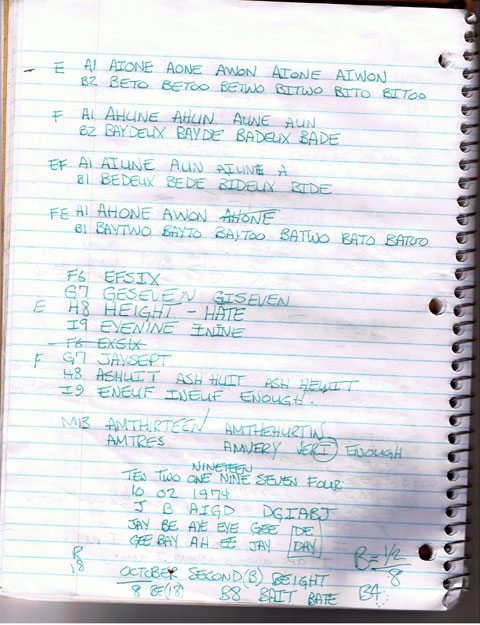 E A1 AIONE AONE AWON AIONE AIWON
B2 BETO BETOO BETWO BITWO BITO BITOO
F A1 AHUNE AHUN AUNE AUN
B2 BAYDEUX BAYDE BADEUX BADE
EF A1 AIUNE AUN AIUNE A
B1 BEDEUX BEDE BIDEUX BIDE
FE A1 AHONE AWON AHONE
B1 BAYTWO BAYTO BAYTOO BATWO BATO BATOO
F6 EFSIX
G7 GESEVEN GISEVEN
E H8 HEIGHT - HATE
I9 EYENINE ININE
F6 EXSIX
F G7 JAYSEPT
H8 ASHUIT ASH HUIT ASH HEWIT
I9 ENEUF INEUF ENOUGH.
M13 AMTHIRTEEN AMTHEHURTIN
AMTRES AMVERY VERI ENOUGH
NINETEEN
TEN TWO ONE NINE SEVEN FOUR
10 02 1974
J B AIGD DGIABJ
JAY BE AYE EYE GEE DE
GEE BAY AH EE JAY DAY
R 18 B=1/2 8
OCTOBER SECOND(B) BEIGHT
8 BE(18) B8 BAIT BATE B4